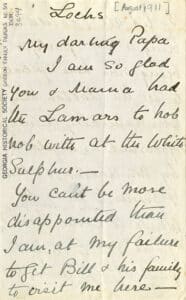 'Lochs
[August 1911]
My darling Papa
I am so glad
you & Mama had
the Lamars to hob
nob with at the White
Sulphur. —
You can't be more
disappointed than
I am, at my failure
to get Bill & his family
to visit me here —
GEORGIA HISTORICAL SOCIETY
GORDON FAMILY PAPERS